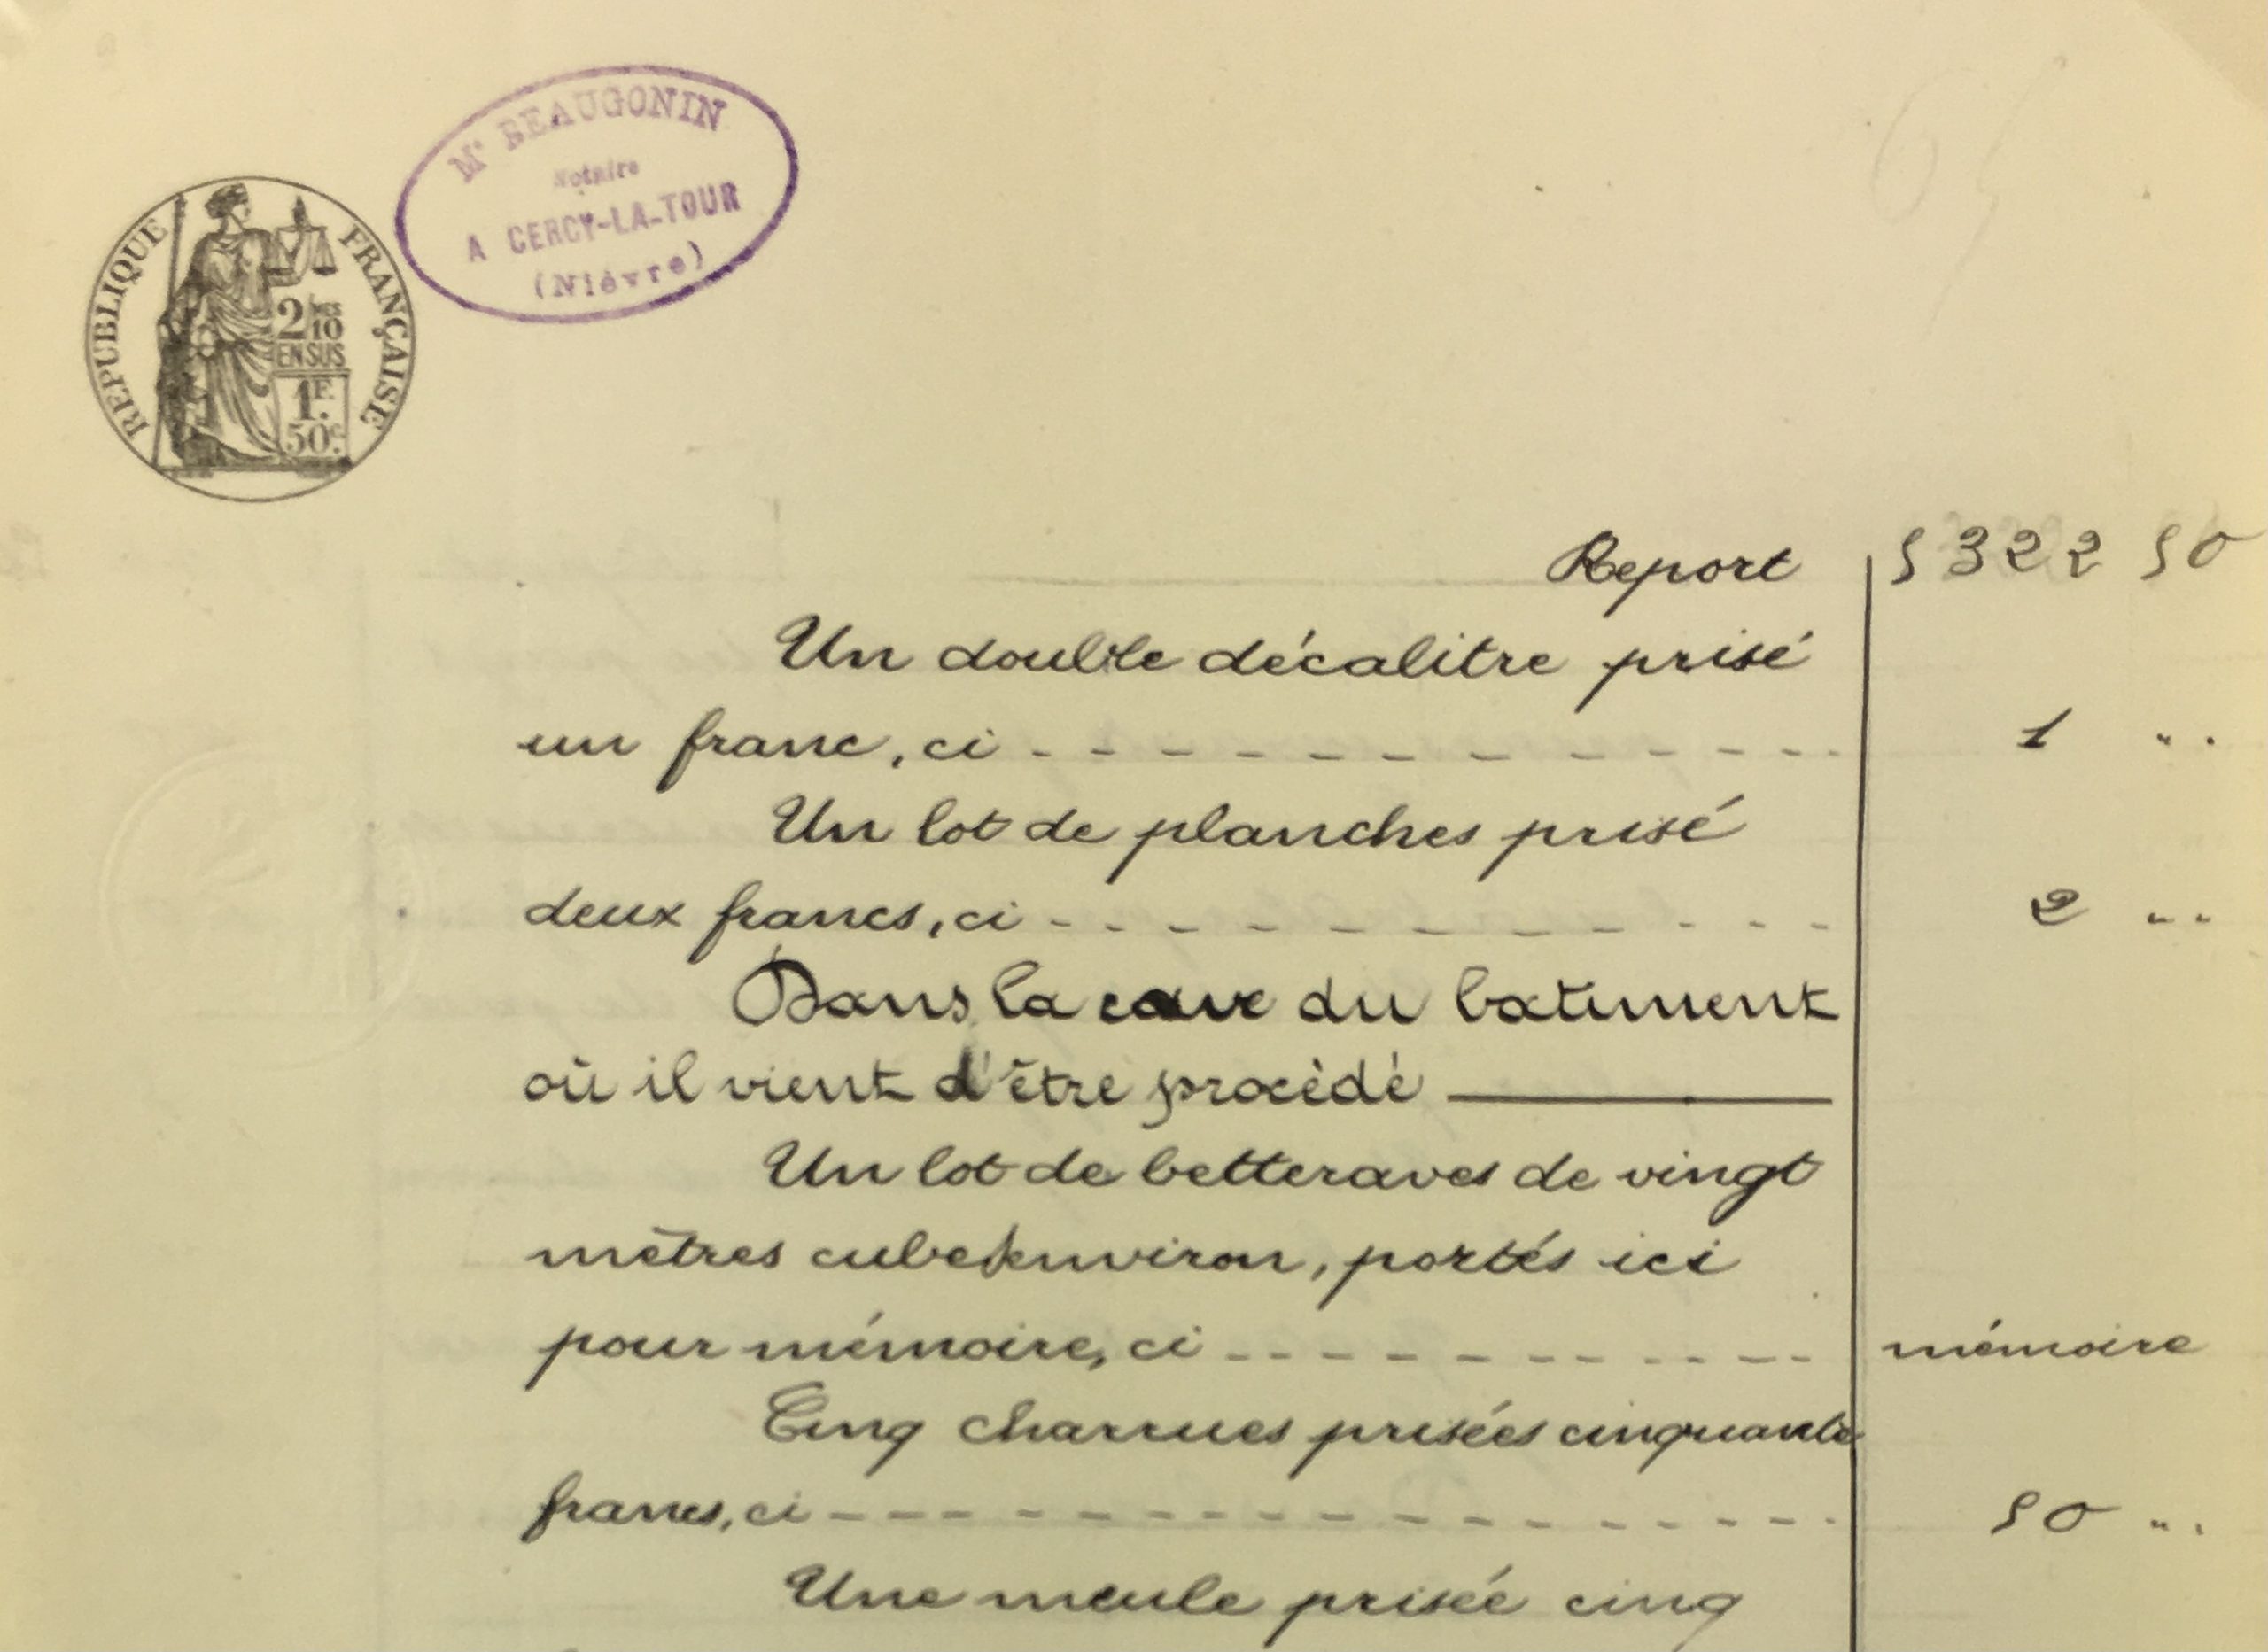 Me BEAUGONIN
Notaire
A CERCY-LA-TOUR
(Nièvre)
REPUBLIQUE FRANÇAISE
2 MES
10
EN SUS
1F.
50c.
65
Report 5322 50
Un double décalitre prisé
un franc, ci - - - - - - - - - - - 1 "
Un lot de planches prisé
deux francs, ci - - - - - - - - - - 2 "
Dans la cave du batiment
où il vient d'être procédé ———
Un lot de betteraves de vingt
mètres cube environ, portés ici
pour mémoire, ci - - - - - - - - - mémoire
Cinq charrues prisées cinquante
francs, ci - - - - - - - - - - - - 50 "
Une meule prisée cinq